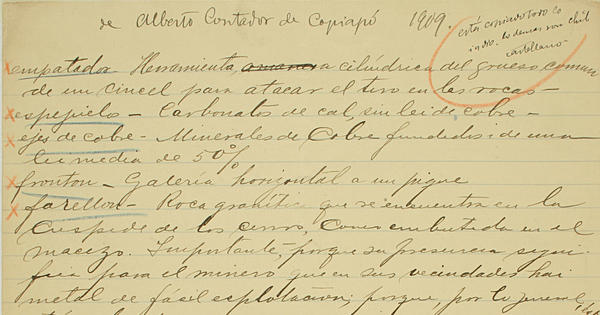 de Alberto Contador de Copiapó 1909.
está copiado todo lo
indio. lo demas son chil
castellano
empatador Herramienta, a manera cilíndrica del grueso comun
de un cincel para atacar el tiro en las rocas —
espejuelo — Carbonatos de cal, sin lei de cobre —
ejes de cobre — Minerales de Cobre fundidos: de una
lei media de 50%
fronton — Galería horizontal a un pique
farellon — Roca granítica que se encuentra en la
Cuspide de los cerros, como embutida en el
macizo. Importante, porque su presencia signi-
fica para el minero que en sus vecindades hai
metal de fácil esplotacion; porque, por lo jeneral,